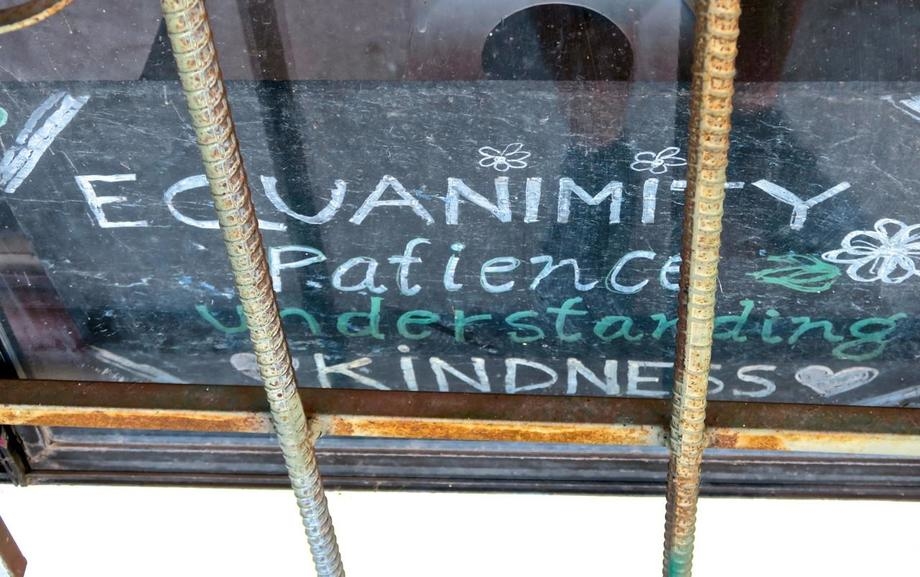 EQUANIMITY
Patience
understanding
KiNDNESS